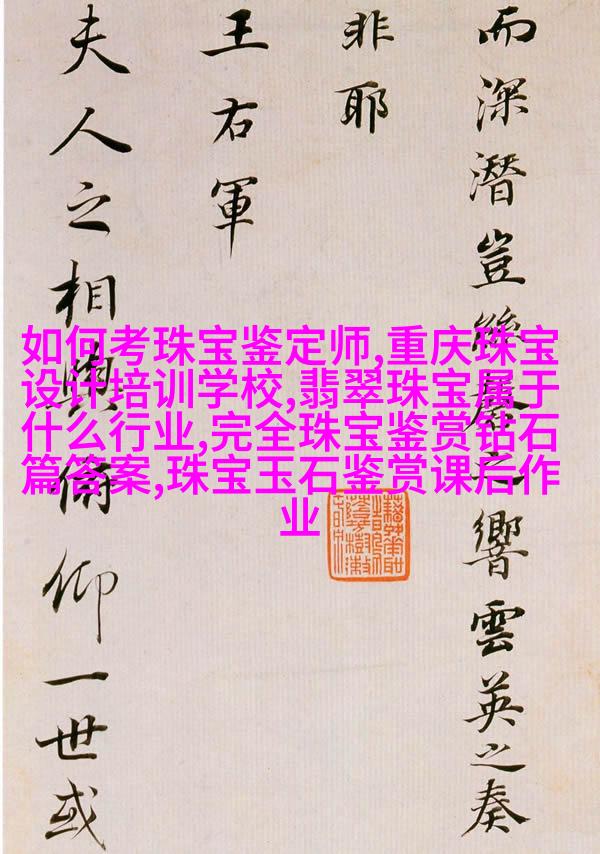 而深潜豈之響雲英之奏
非耶
王右軍
夫人之相與俯仰一世或
如何考珠宝鉴定师,重庆珠宝
设计培训学校,翡翠珠宝属于
什么行业,完全珠宝鉴赏钻石
篇答案,珠宝玉石鉴赏课后作
业